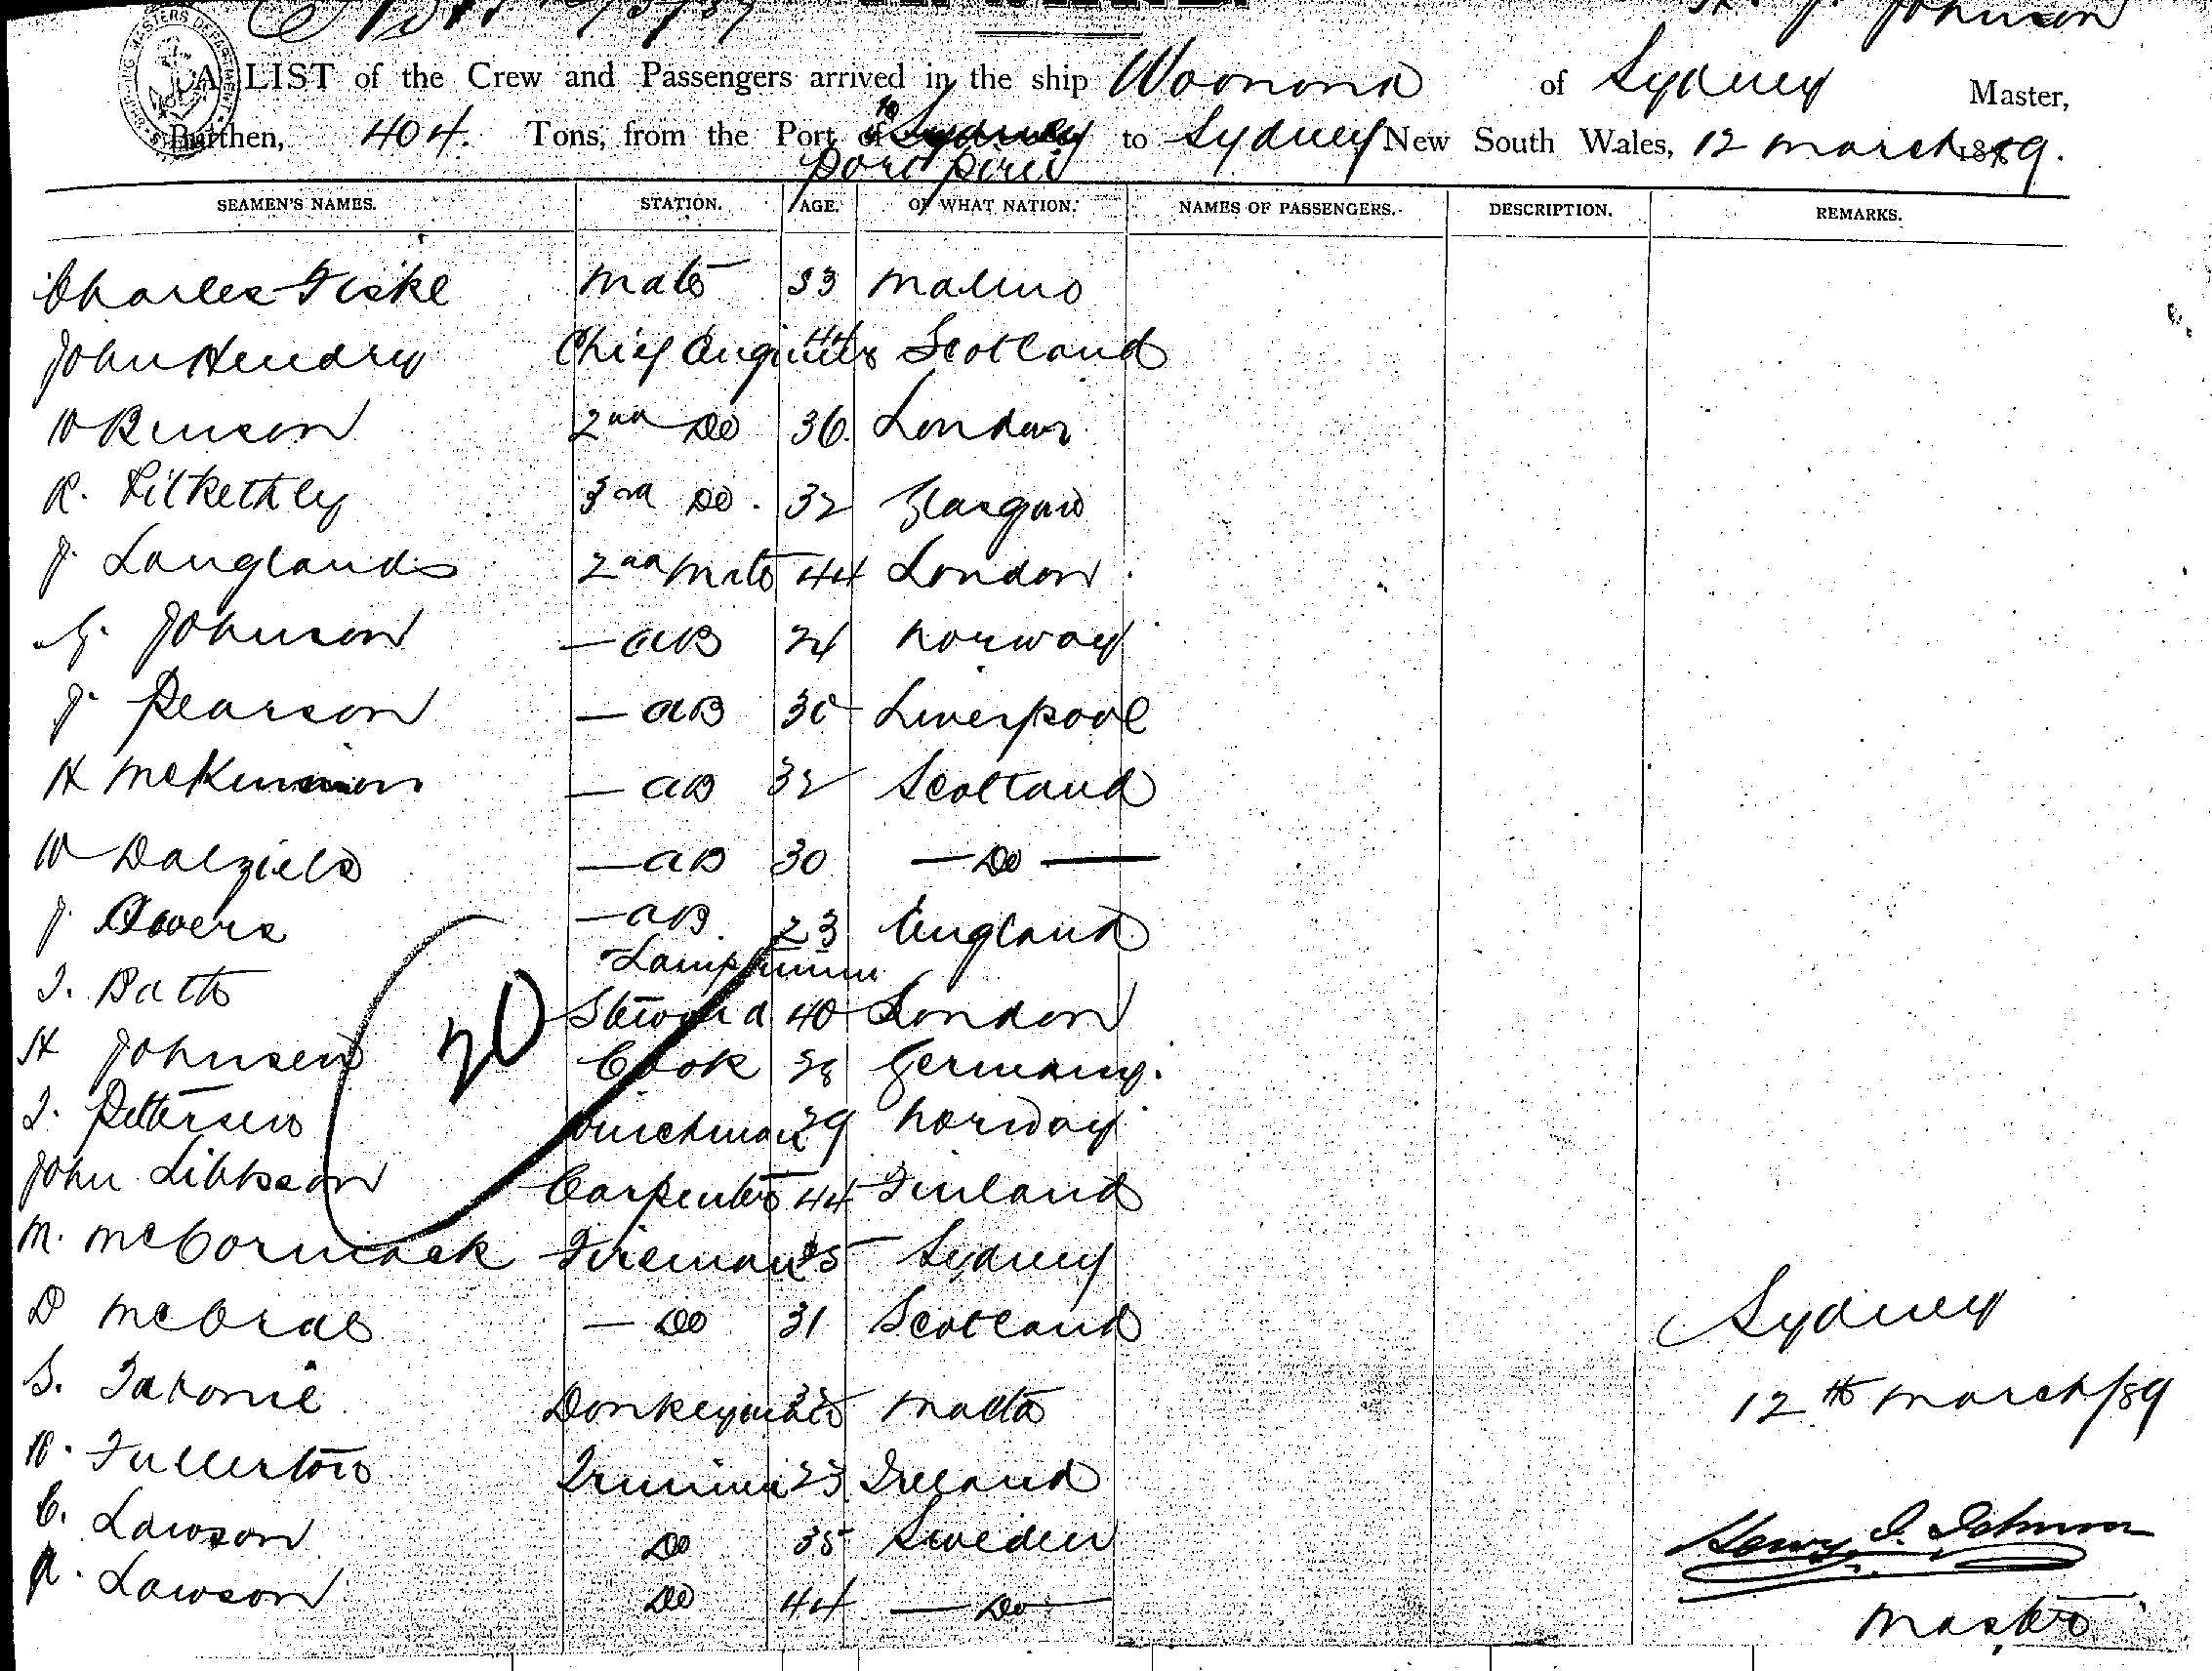 H. J. Johnson
A LIST of the Crew and Passengers arrived in the ship Woonona of Sydney Master,
Burthen, 404. Tons, from the Port of Sydney to Sydney New South Wales, 12 March 1889.
Port Pirie
SEAMEN'S NAMES. STATION. AGE. OF WHAT NATION. NAMES OF PASSENGERS. DESCRIPTION. REMARKS.
Charles Fiske Mate 33
John Hendry Chief Engineer 44 Scotland
W Benson 2nd Do 36 London
R. Kilkethley 3rd Do. 32 Glasgow
J. Langlands 2nd Mate 44 London
G. Johnson - AB 24 Norway
J. Pearson - AB 30 Liverpool
H McKinnon - AB 32 Scotland
W Dalziell - AB 30 - Do -
J. Owers - AB 23 England
Lamptrimmer
T. Batts Steward 40 London
H Johnsen Cook 38 Germany
T. Pettersen Winchman 29 Norway
John Carpenter 44 Finland
M. McCormack Fireman 35 Sydney
D McCrae - Do 31 Scotland
S. Donkeyman 33 Malta
W. Fullerton Trimmer 23 Ireland
C. Lawson Do 35 Sweden
A. Lawson Do 44 - Do -
20
Sydney
12th March/89
Henry J. Johnson
Master